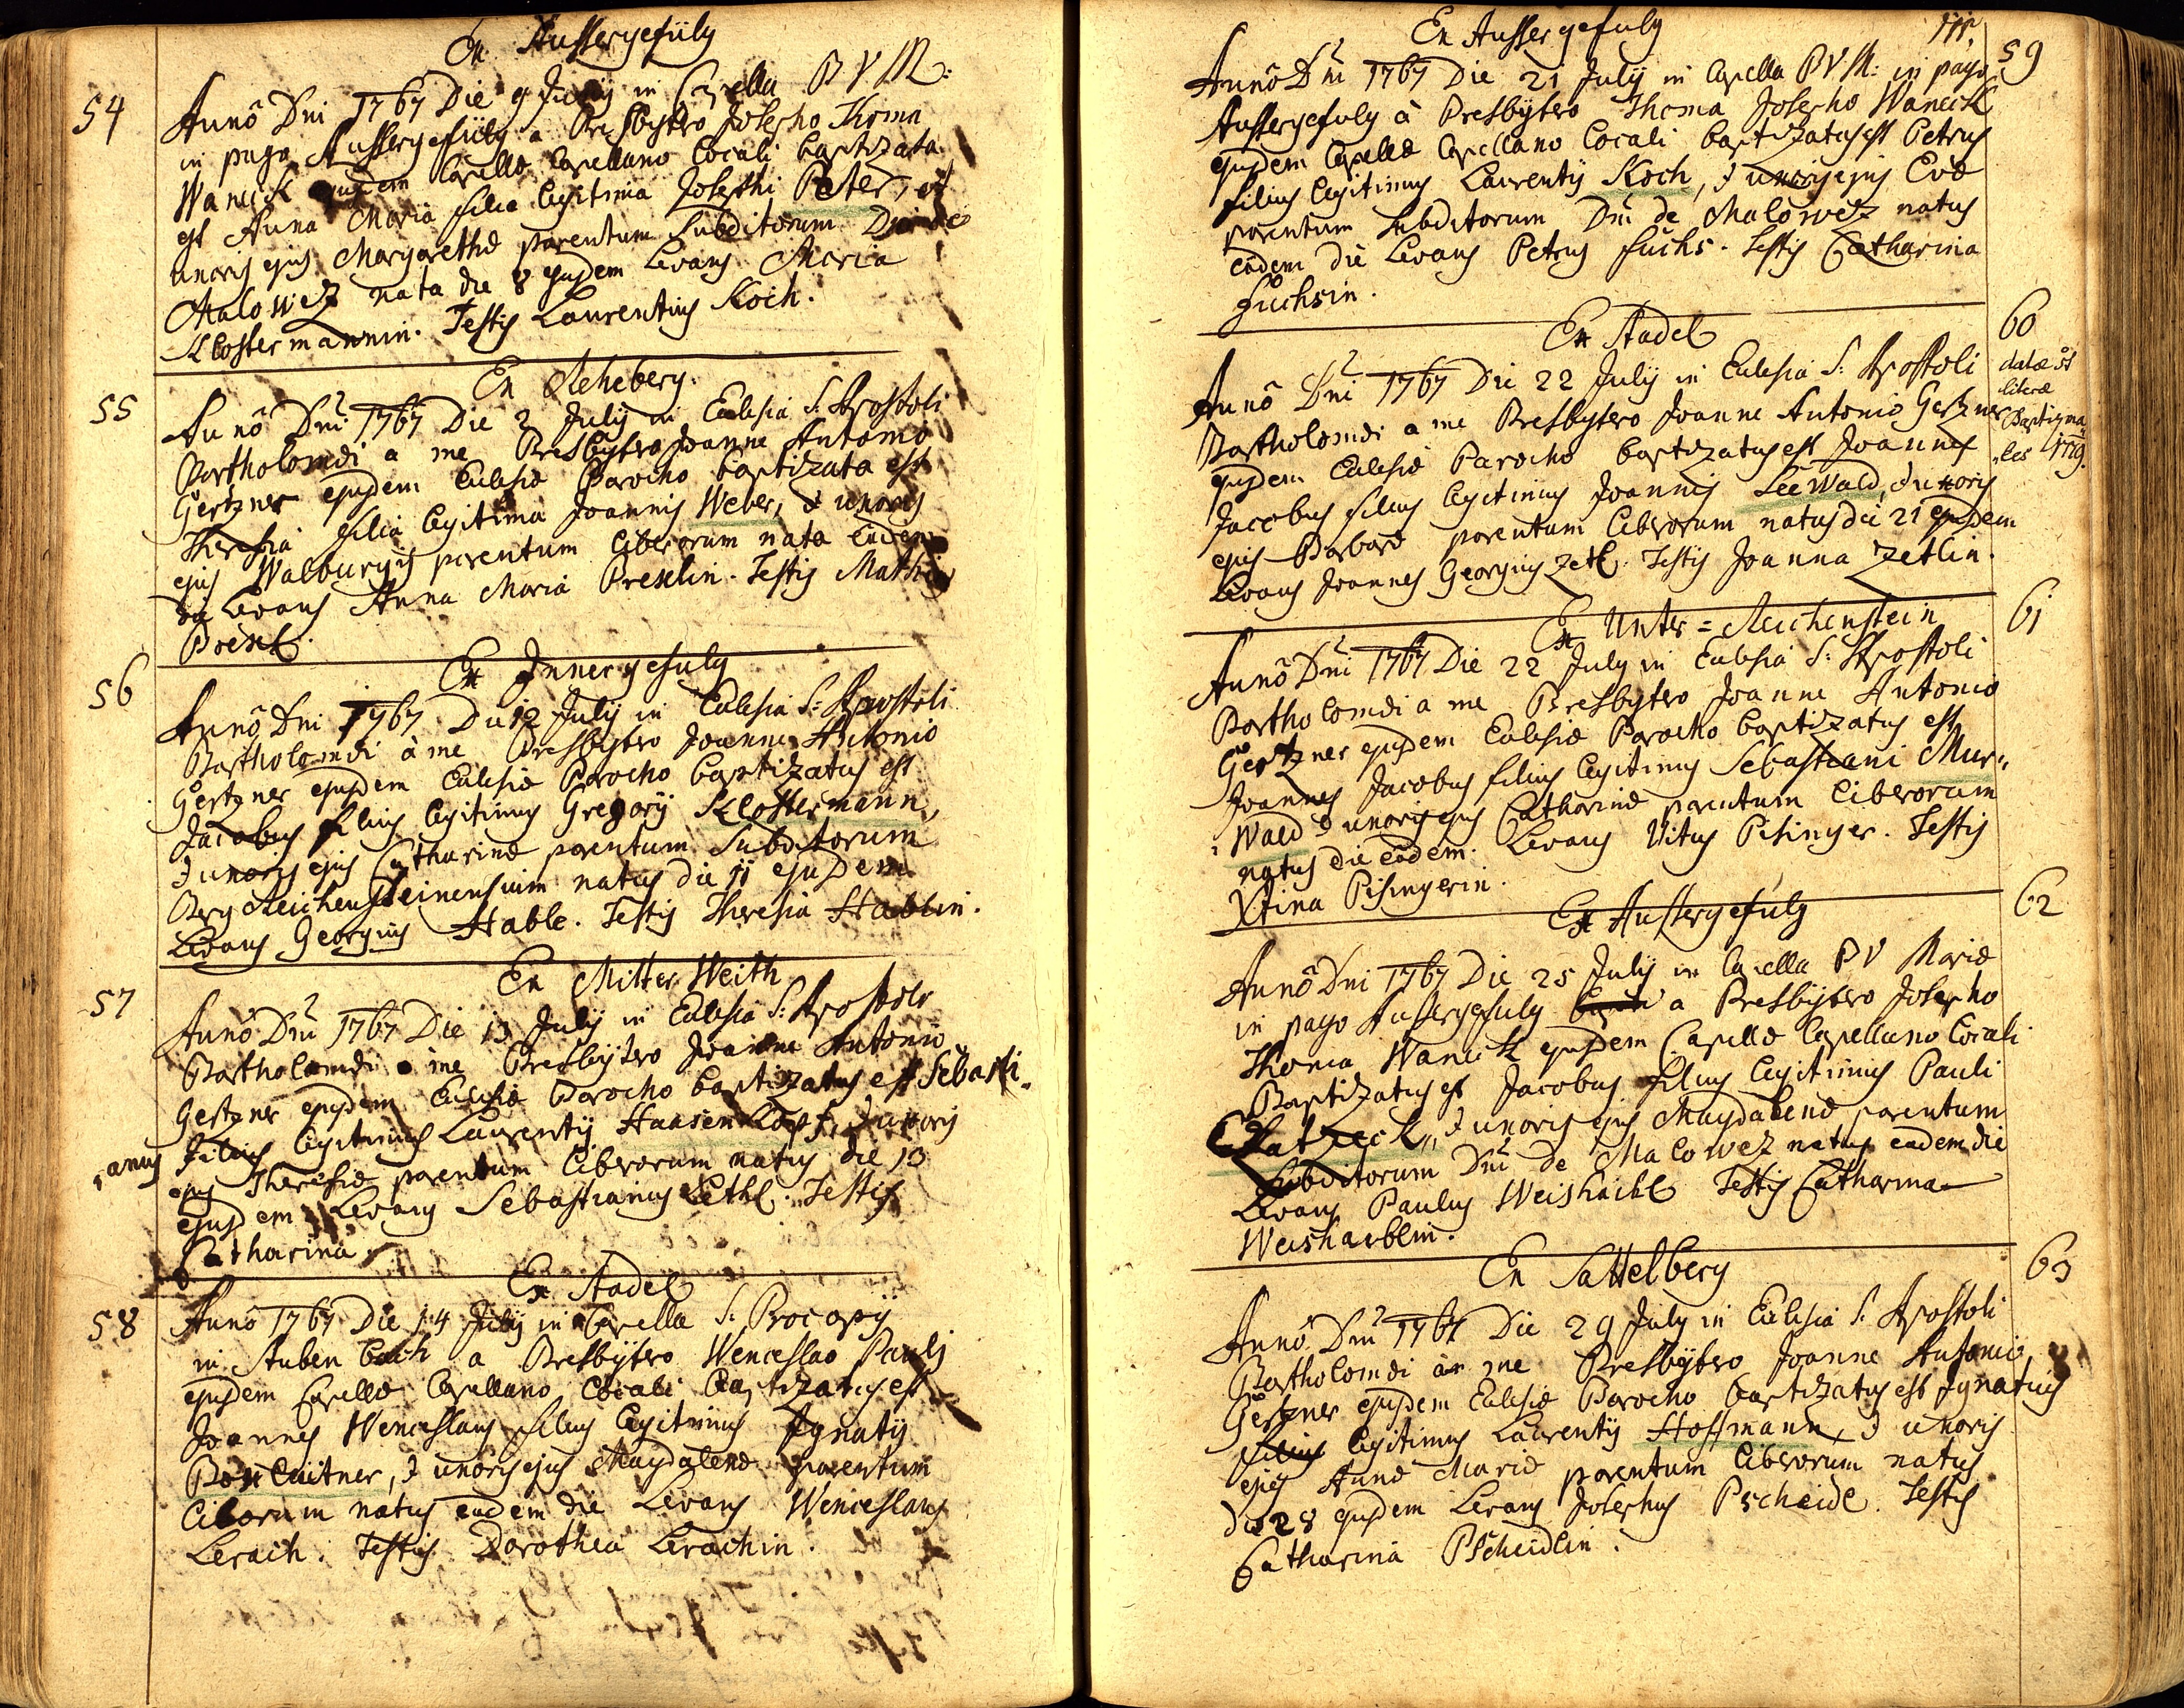 Ex Aussergefüld
54
Anno Dni 1767 Die 9 Julij in Capella B V M:
in pago Aussergefüld a Presbytero Josepho Thoma
Wancik ejusdem Capellæ Capellano locali baptizata
est Anna Maria filia legitima Josephi Peter, et
uxoris ejus Margarethæ parentum subditorum Dni de
Malowez nata die 8 ejusdem Levans Maria
Klostermannin. Testis Laurentius Koch.
Ex Reheberg.
55
Anno Dni 1767 Die 2 Julij in Eclesia S. Apostoli
Bartholomæi a me Presbytero Joanne Antonio
Gertzner ejusdem Eclesiæ Parocho baptizata est
Theresia filia legitima Joannis Weber, & uxoris
ejus Walburgis parentum liberorum nata eadem
die Levans Anna Maria Prexlin. Testis Mathias
Prexl.
56
Ex Innergefuld
Anno Dni 1767 Die 12 Julij in Eclesia S: Apostoli
Bartholomæi à me Presbytero Joanne Antonio
Gertzner ejusdem Eclesiæ Parocho baptizatus est
Jacobus filius legitimus Gregorij Klostermann,
& uxoris ejus Catharinæ parentum Subditorum
Berg Reichensteinensium natus die 11 ejusdem
Levans Georgius Hable. Testis Theresia Hablin.
Ex Mitter Weith
57
Anno Dni 1767 Die 13 Julij in Eclesia S: Apostoli
Bartholomæi a me Presbytero Joanne Antonio
Gertzner ejusdem Eclesiæ Parocho baptizatus est Sebasti„
„anus filius legitimus Laurentij Haasen Kopf, & uxoris
ejus Theresiæ parentum liberorum natus die 13
ejusdem Levans Sebastianus Zethl. Testis
Catharina.
Ex Stadel
58
Anno 1767 Die 14 Julij in Capella S: Procopij
in Stubenbach a Presbytero Wenceslao Paulj
ejusdem Capellæ Capellano locali baptizatus est
Joannes Wenceslaus filius legitimus Ignatij
Boxleitner, & uxoris ejus Magdalenæ parentum
liborum natus eadem die Levans Wenceslaus
Lerach. Testis Dorothea Lerachin.
Ex Aussergefuld
59
Anno Dni 1767 Die 21 Julij in Capella B V M: in pago
Aussergefuld à Presbytero Thoma Josepho Wancik
ejusdem Capellæ Capellano locali baptizatus est Petrus
filius legitimus Laurentij Koch, & uxoris ejus Evæ
parentum subditorum Dni de Malowez natus
eadem die Levans Petrus Fuchs. Testis Catharina
Fuchsin.
Ex Stadel
60
datæ st
literæ
Baptisma„
„les 1779.
Anno Dni 1767 Die 22 Julij in Eclesia S: Apostoli
Bartholomæi a me Presbytero Joanne Antonio Gertzner
ejusdem Eclesiæ Parocho baptizatus est Joannes
Jacobus filius legitimus Joannis Seewald, & uxoris
ejus Barbaræ parentum liberorum natus die 21 ejusdem
Levans Joannes Georgius Zetl. Testis Joanna Zetlin.
Ex Unter = Reichenstein
61
Anno Dni 1767 Die 22 July in Eclesia S: Apostoli
Bartholomæi a me Presbytero Joanne Antonio
Gertzner ejusdem Eclesiæ Parocho baptizatus est
Joannes Jacobus filius legitimus Sebastiani Mur„
„Wald & uxoris ejus Catharinæ parentum liberorum
natus die eadem. Levans Vitus Pisinger. Testis
Xtina Pisingerin.
Ex Aussergefuld
62
Anno Dni 1767 Die 25 Julij in Capella B V Mariæ
in pago Aussergefuld a Presbytero Josepho
Thoma Wancik ejusdem Capellæ Capellano locali
Baptizatus est Jacobus filius legitimus Pauli
& uxoris ejus Magdalenæ parentum
Subditorum Dni de Malowez natus eadem die
Levans Paulus Weishaibl Testis Catharina
Weishaiblin.
Ex Sattelberg
63
Anno Dni 1767 Die 29 July in Eclesia S. Apostoli
Bartholomæi à me Presbytero Joanne Antonio
Gertzner ejusdem Eclesiæ Parocho baptizatus est Ignatius
filius legitimus Laurentij Hoffmann, & uxoris
ejus Annæ Mariæ parentum liberorum natus
die 28 ejusdem Levans Josephus Pscheidl. Testis
Catharina Pscheidlin.